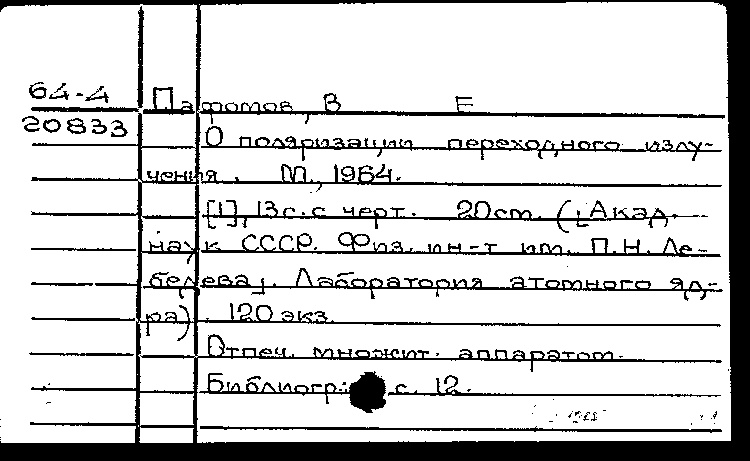 64-4
20833
Пафомов, В Е
О поляризации переходного излу-
чения. М., 1964.
[1], 13 с. с черт. 20 cm. ([Акад.
наук СССР. Физ. ин-т им. П.Н. Ле-
бедева]. Лаборатория атомного яд-
ра). 120 экз.
Отпеч. множит. аппаратом.
Библиогр.: с. 12.